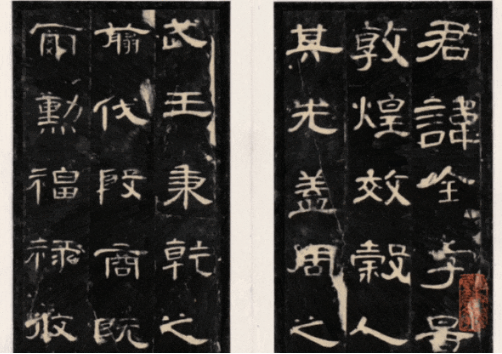 君諱全字景
敦煌效穀人
其先蓋周之
武王秉乾之
翦伐殷商既
爾勳福祿攸